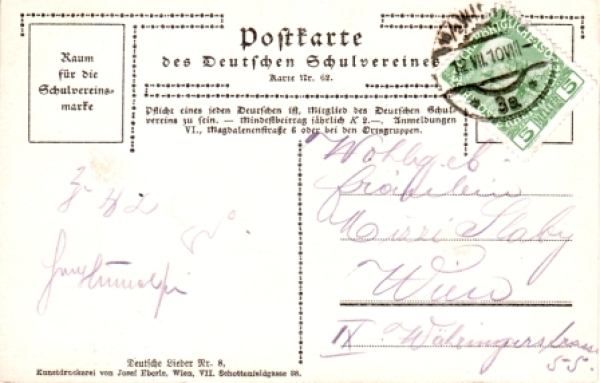 Raum
für die
Schulvereins-
marke
Postkarte
des Deutschen Schulvereines
Karte Nr. 62.
Pflicht eines jeden Deutschen ist, Mitglied des Deutschen Schul-
vereins zu sein. — Mindestbeitrag jährlich K 2.—, Anmeldungen
VI., Magdalenenstraße 6 oder bei den Ortsgruppen.
WIEN
12.VII.10
9a
5
5
Wohlgeb
Fräulein
Mizzi Slaby
Wien
IX. Währingerstrasse
55.
Deutsche Lieder Nr. 8.
Kunstdruckerei von Josef Eberle, Wien, VII. Schottenfeldgasse 38.